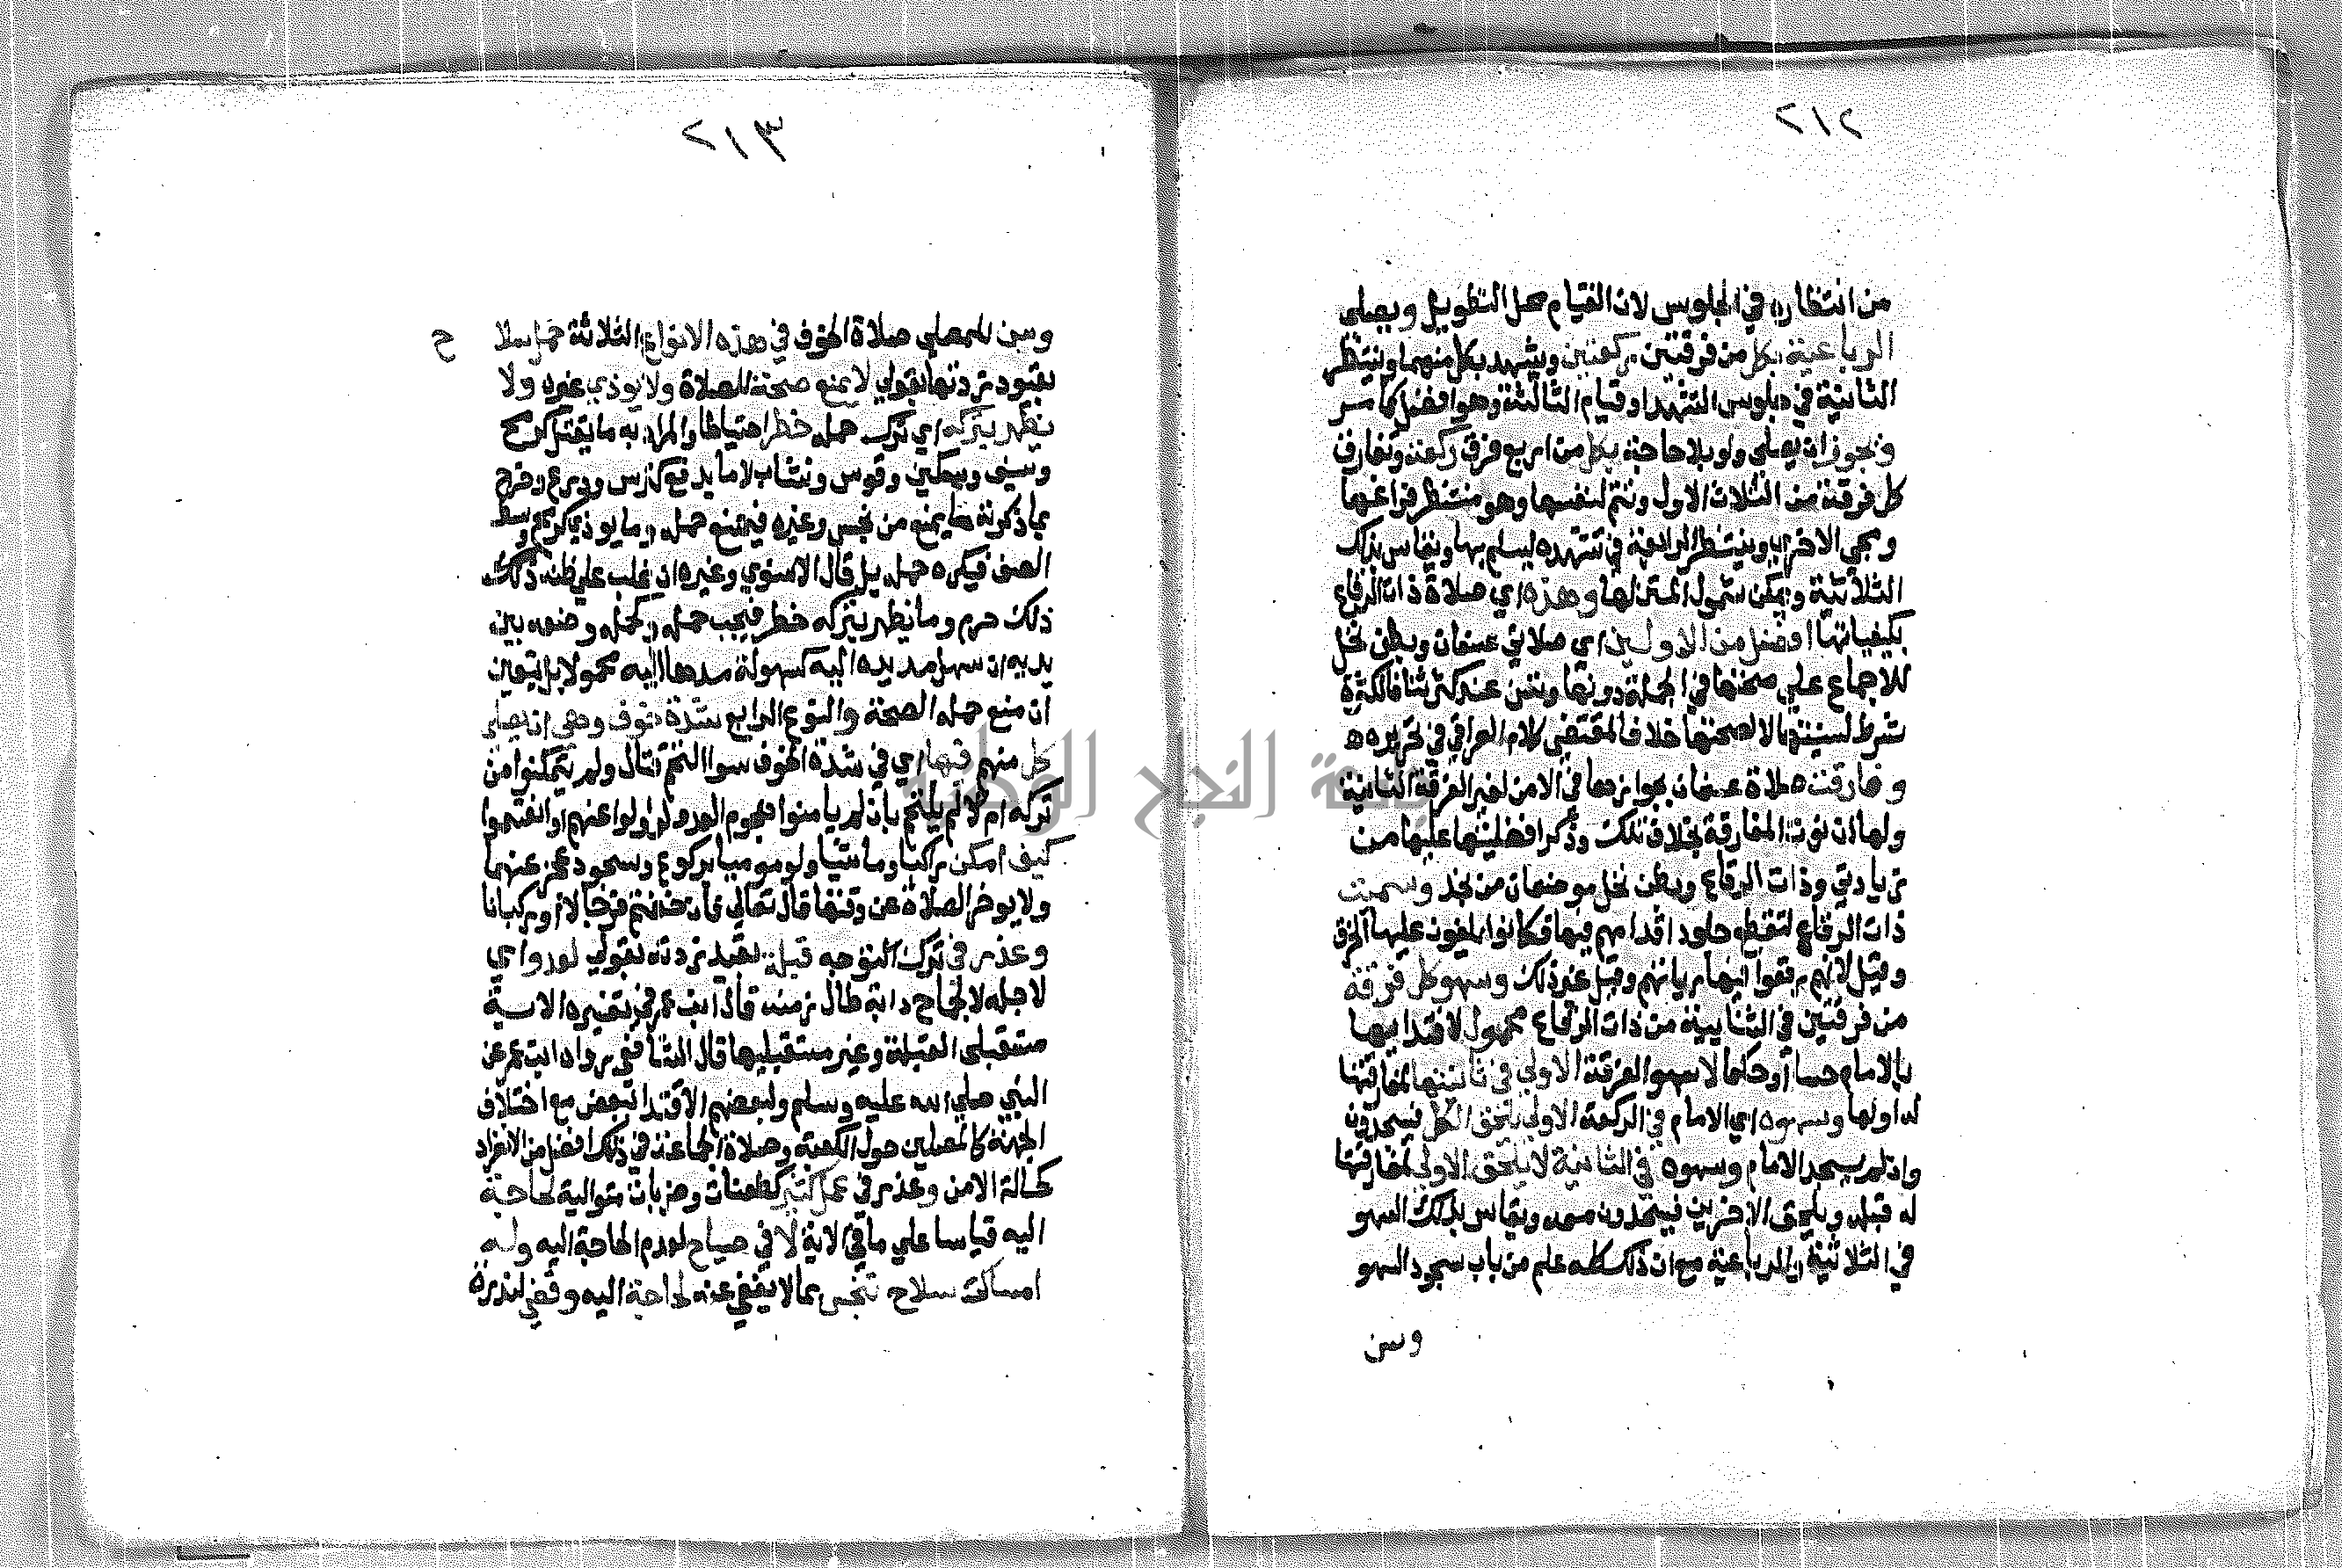 ٢١٢
من انتظاره في الجلوس لان القيام محل التطويل ويصلي
الرباعية بكل من فرقتين ركعتين ويتشهد بكل منهما وينتظر
الثانية في جلوس التشهد او قيام الثالثة وهو افضل كما مر
ويجوز ان يصلي ولو بلا حاجة بكل من اربع فرق ركعة وتفارق
كل فرقة من الثلاث الاول وتتم لنفسها وهو منتظر فراغها
ويجي الاخري وينتظر الرابعة في تشهده ليسلم بها ويقاس بذلك
الثلاثية ويمكن شمول المتن لها وهذه اي صلاة ذات الرقاع
بكيفياتها افضل من الاوليين اي صلاتي عسفان وبطن نخل
للاجماع علي صحتها في الجملة دونهما وتسن عند كثرتنا فالكثرة
شرط لسنيتها لا لصحتها خلافا لمقتضي كلام العراقي في تحريره
وفارقت صلاة عسفان بجوازها في الامن لغير الفرقة الثانية
ولها ان نوت المفارقة بخلاف تلك وذكر افضليتها عليها من
زيادتي وذات الرقاع وبطن نخل موضعان من نجد وسميت
ذات الرقاع لتقطع جلود اقدامهم فيها فكانوا يلفون عليها الخرق
وقيل لانهم رقعوا فيها راياتهم وقيل غير ذلك وسهو كل فرقة
من فرقتين في الثنايية من ذات الرقاع محمول لاقتدايها
بالامام حسا او حكما لا سهو الفرقة الاولي في ثانيتها لمفارقتها
له اولها وسهوه اي الامام في الركعة الاولي يلحق الكل فيسجدون
وان لم يسجد الامام وسهوه في الثانية لا يلحق الاولي لمفارقتها
له قبله ويلحق الاخرين فيسجدون معه ويقاس بذلك السهو
في الثلاثية والرباعية مع ان ذلك كله علم من باب سجود السهو
وسن
٢١٣
وسن للمصلي صلاة الخوف في هذه الانواع الثلاثة حمل سلا ح
بقيود زدتها بقولي لا يمنع صحة الصلاة ولا يوذي غيره ولا
يظهر بتركه اي ترك حمله خطر احتياطا والمراد به ما يقتل كرمح
وسيف وسكين وقوس ونشاب لا ما يدفع كترس ودرع وخرج
بما ذكرته ما يمنع من نجس وغيره فيمتنع حمله وما يوذي كرمح وسط
الصف فيكره حمله بل قال الاسنوي وغيره ان غلب علي ظنه ذلك
ذلك حرم وما يظهر بتركه خطر فيجب حمله وكحمله وضعه بين
يديه ان سهل مد يده اليه كسهولة مدها اليه محمولا بل يتعين
ان منع حمله الصحة والنوع الرابع شدة خوف وهي ان يصلي
كل منهم فيها اي في شدة الخوف سوا التحم قتال ولم يتمكنوا من
تركه ام لا لم يلتحم بان لم يامنوا هجوم العدو لو ولوا عنهم او انقسموا
كيف امكن راكبا وماشيا ولو موميا بركوع وسجود عجز عنهما
ولا يوخر الصلاة عن وقتها قال تعالي فان خفتم فرجالا او ركبانا
وعذر في ترك التوجه قبلة بقيد زدته بقولي لعدو اي
لاجله لا لجماح دابة طال زمنه قال ابن عمر في تفسيره الاية
مستقبلي القبلة وغير مستقبليها قال الشافعي رواه ابن عمر عن
النبي صلي الله عليه وسلم ولبعضهم الاقتدا ببعض مع اختلاف
الجهة كالمصلين حول الكعبة وصلاة الجماعة في ذلك افضل من الانفراد
كحالة الامن وعذر في عمل كثير كطعنات وضربات متوالية لحاجة
اليه قياسا علي ما في الاية لا في صياح لعدم الحاجة اليه وله
امساك سلاح تنجس بما لا يعفي عنه لحاجة اليه وقضي لندرة
جامعة النجاح الوطنية